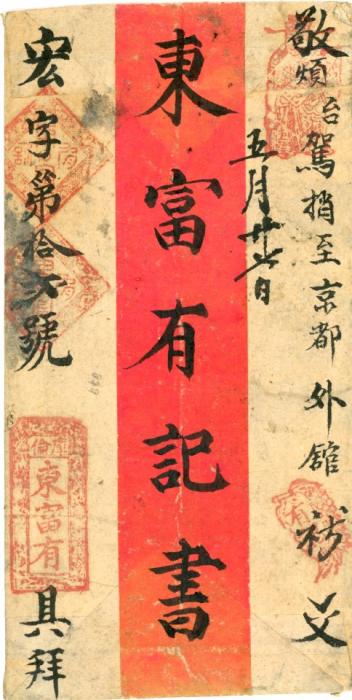 敬煩台駕捎至京都外館 交
五月廿日
東富有記書
宏字第拾六號 具拜
東富有